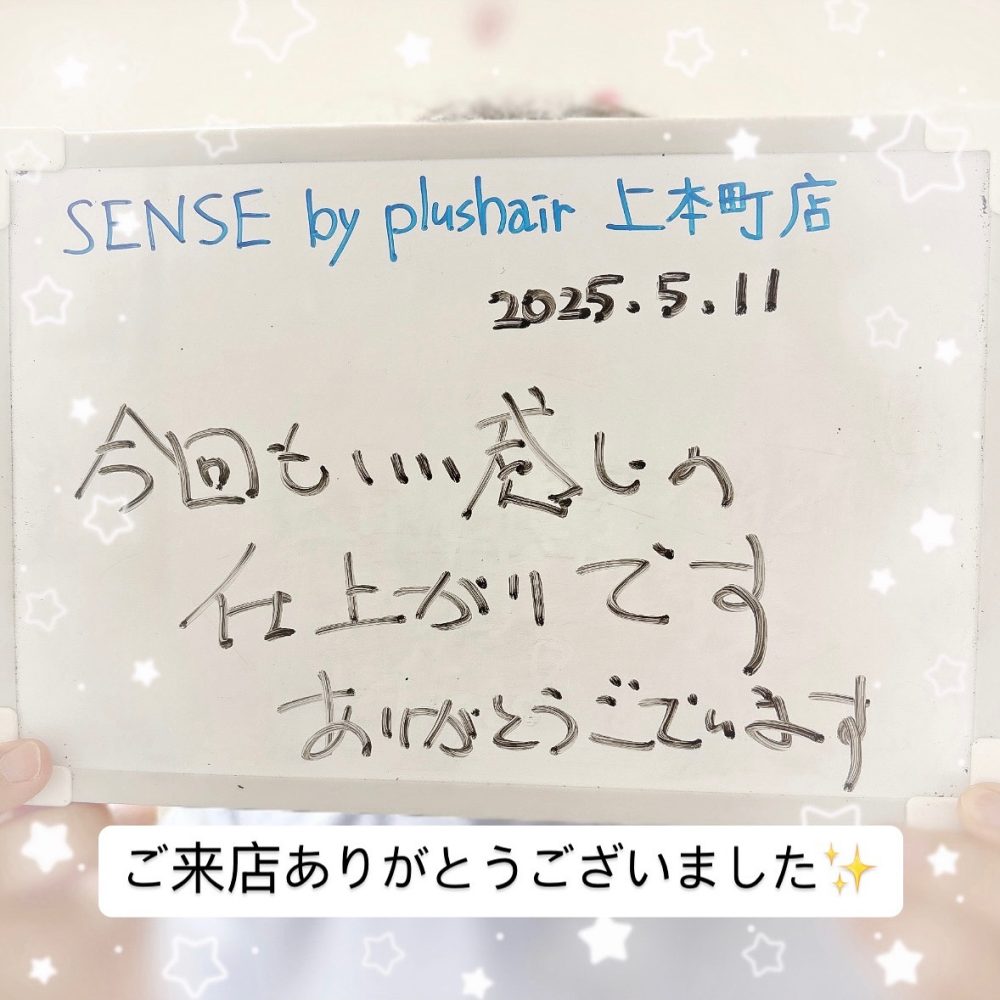 SENSE by plushair 上本町店
2025.5.11
今回もいい感じの
仕上がりです
ありがとうございます
ご来店ありがとうございました✨